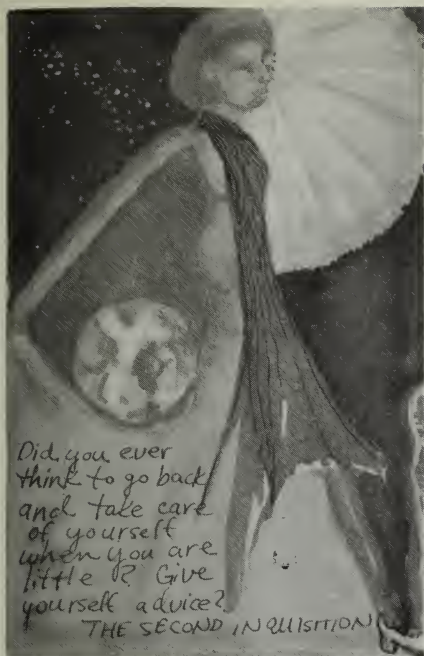 Did you ever
think to go back
and take care
of yourself
when you are
little? Give
yourself advice?
THE SECOND INQUISITION